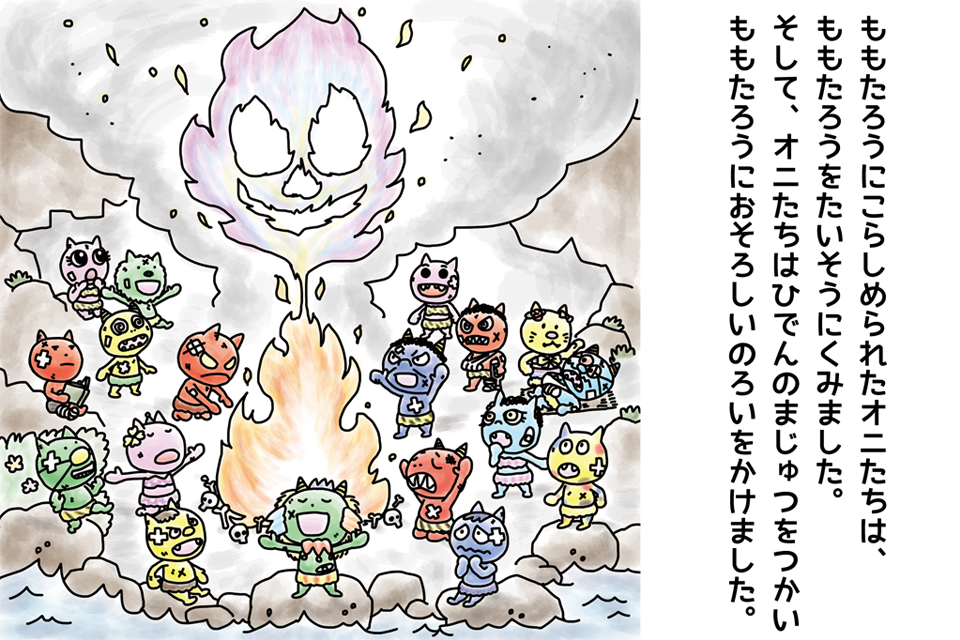 ももたろうにこらしめられたオニたちは、
ももたろうをたいそうにくみました。
そして、オニたちはひでんのまじゅつをつかい
ももたろうにおそろしいのろいをかけました。